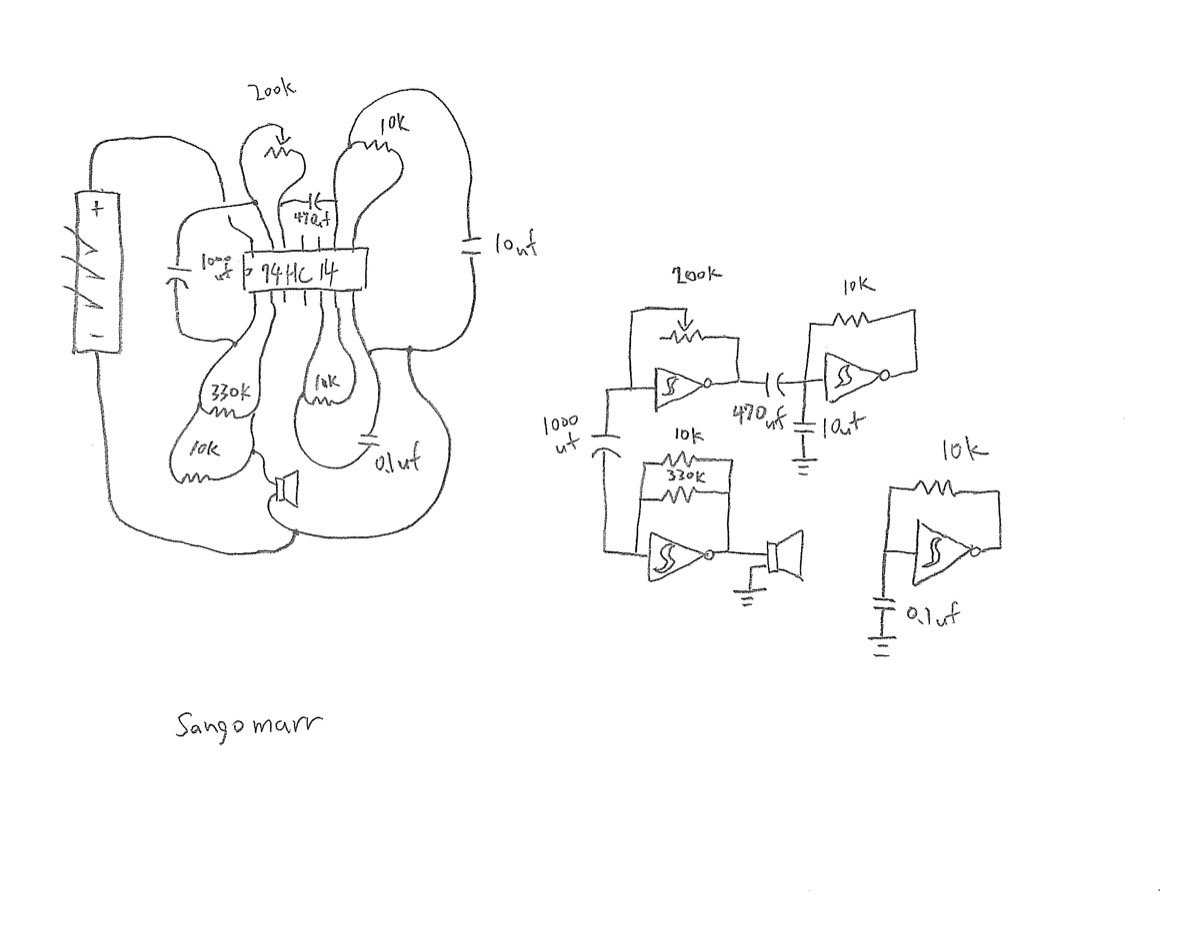 200k
10k
+
470uf
1000
uf
74HC14
10uf
-
330k
10k
10k
0.1uf
200k
10k
1000
uf
470uf
10uf
10k
330k
10k
0.1uf
Sangomarr